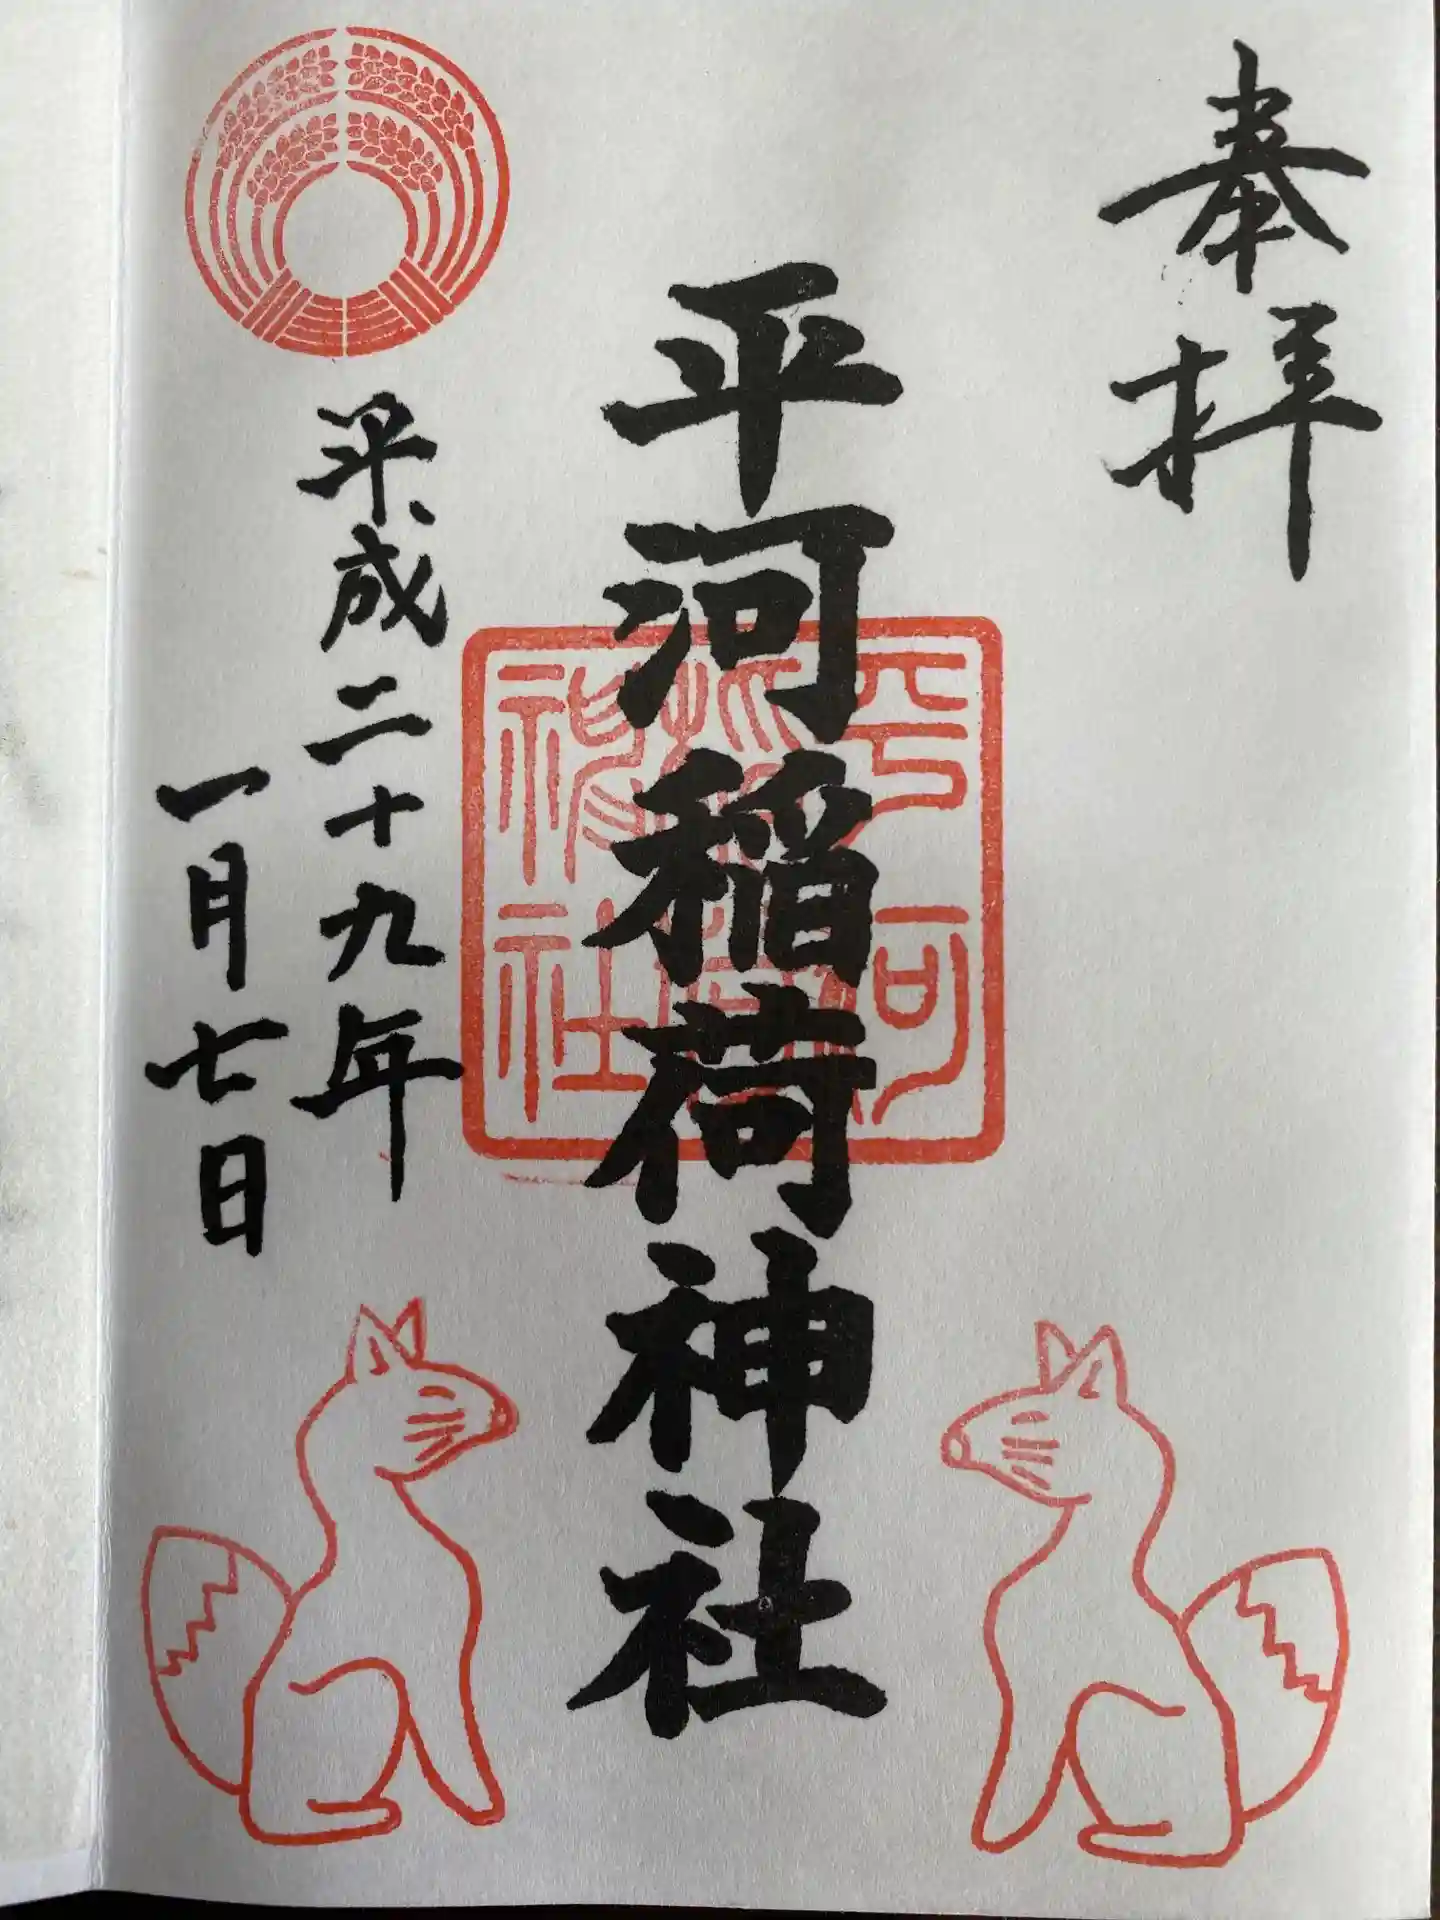 奉拝
平河稲荷神社
平河
稲荷
神社
平成二十九年
一月七日